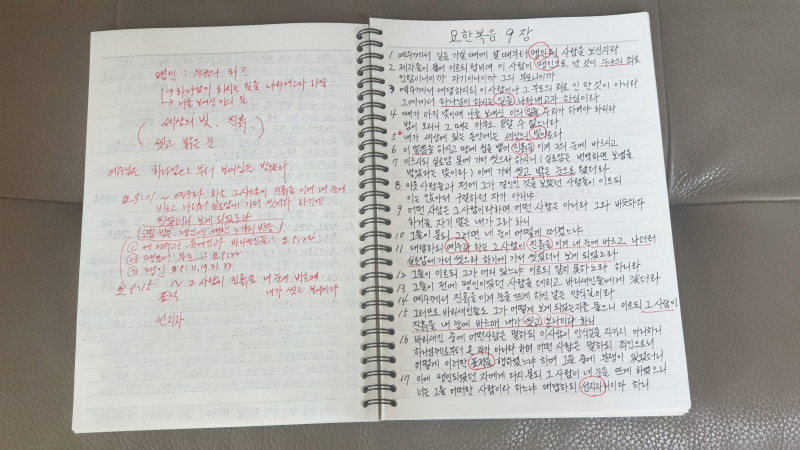 맹인 : 누구의 죄?
↳ 하나님이 하시는 일을 나타내고자 하심
↳ 나를 보내신 이의 일
( 세상의 빛, 진흙,
씻고 밝은 눈 )
예수님은 하나님으로부터 보내심을 받았다
요 9:11 ~ 예수라 하는 그 사람이 진흙을 이겨 내 눈에
바르고 나더러 실로암에 가서 씻으라 하기에
씻었더니 보게 되었노라
① 바리새인들
② 맹인의 부모
③ 맹인
요 9:15 ~ 그 사람이 진흙을 내 눈에 바르매
내가 씻고 보나이다
표적
선지자
요한복음 9장
1 예수께서 길을 가실 때에 날 때부터 맹인된 사람을 보신지라
2 제자들이 물어 이르되 랍비여 이 사람이 맹인으로 난 것이 누구의 죄로
인함이니이까 자기이니이까 그의 부모이니까
3 예수께서 대답하시되 이 사람이나 그 부모의 죄로 인한 것이 아니라
그에게서 하나님이 하시는 일을 나타내고자 하심이라
4 때가 아직 낮이매 나를 보내신 이의 일을 우리가 하여야 하리라
밤이 오리니 그 때는 아무도 일할 수 없느니라
5* 내가 세상에 있는 동안에는 세상의 빛이로라
6 이 말씀을 하시고 땅에 침을 뱉어 진흙을 이겨 그의 눈에 바르시고
7 이르시되 실로암 못에 가서 씻으라 하시니 (실로암은 번역하면 보냄을
받았다는 뜻이라) 이에 가서 씻고 밝은 눈으로 왔더라
8 이웃 사람들과 전에 그가 걸인인 것을 보았던 사람들이 이르되
이는 앉아서 구걸하던 자가 아니냐
9 어떤 사람은 그 사람이라하며 어떤 사람은 아니라 그와 비슷하다
하거늘 자기 말은 내가 그라 하니
10 그들이 묻되 그러면 네 눈이 어떻게 떠졌느냐
11 대답하되 예수라 하는 그 사람이 진흙을 이겨 내 눈에 바르고 나더러
실로암에 가서 씻으라 하기에 가서 씻었더니 보게 되었노라
12 그들이 이르되 그가 어디 있느냐 이르되 알지 못하노라 하니라
13 그들이 전에 맹인이었던 사람을 데리고 바리새인들에게 갔더라
14 예수께서 진흙을 이겨 눈을 뜨게 하신 날은 안식일이라
15 그러므로 바리새인들도 그가 어떻게 보게 되었는지를 물으니 이르되 그 사람이
진흙을 내 눈에 바르매 내가 씻고 보나이다 하니
16 바리새인 중에 어떤사람은 말하되 이사람이 안식일을 지키지 아니하니
하나님께로부터 온 자가 아니라 하며 어떤 사람은 말하되 죄인으로서
어떻게 이러한 표적을 행하겠느냐 하여 그들 중에 분쟁이 있었더니
17 이에 맹인되었던 자에게 다시 묻되 그 사람이 네 눈을 뜨게 하였으니
너는 그를 어떠한 사람이라 하느냐 대답하되 선지자니이다 하니